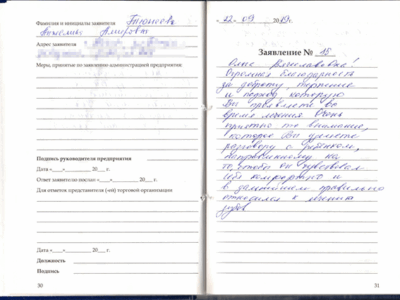 Фамилия и инициалы заявителя
Адрес заявителя
Меры, принятые по заявлению администрацией предприятия:
Подпись руководителя предприятия
Дата «___» ______ 20___ г.
Ответ заявителю послан: «___» ______ 20___ г.
Для отметок представителя (-ей) торговой организации
Дата «___» ______ 20___ г.
Должность
Подпись
30
«22» 09 2019г.
Заявление № 15
Огромная благодарность
за доброту, терпение
и
Вы проявляете во
время лечения. Очень
приятно то внимание,
которое Вы уделяете
разговору с ребенком,
на
то, чтобы он чувствовал
себя комфортно и
в дальнейшем правильно
относился к лечению
зубов
31